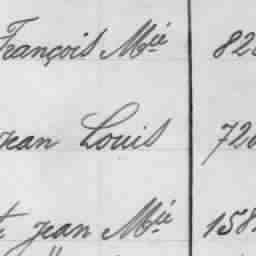 François Mié 82
Jean Louis 72
Jean Mié 158